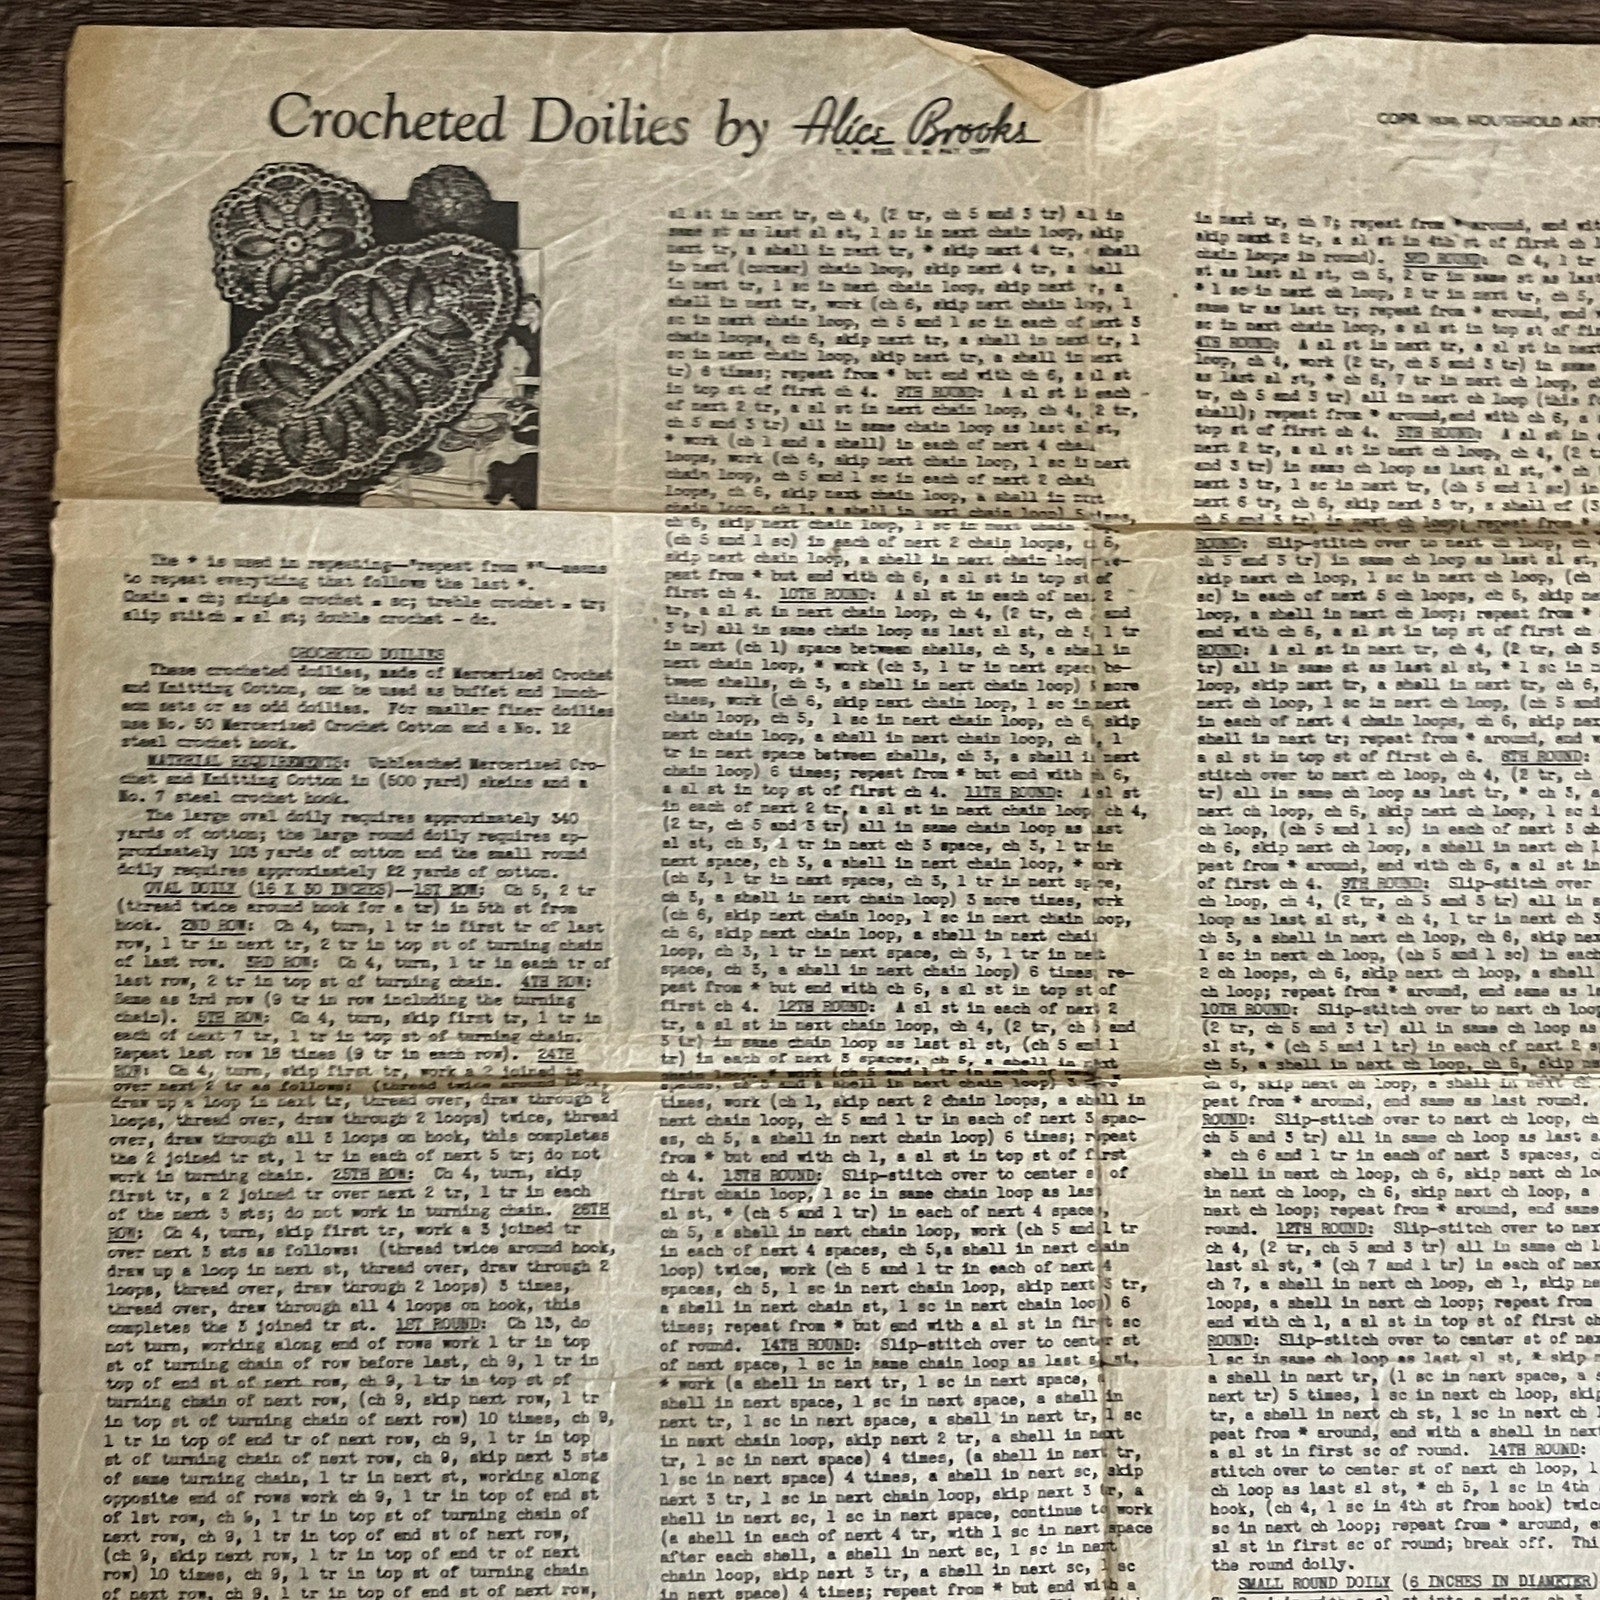 Crocheted Doilies by Alice Brooks
T. M. REG. U. S. PAT. OFF.
COPR. HOUSEHOLD ARTS
The * is used in repeating—"repeat from *"—means
to repeat everything that follows the last *.
Chain = ch; single crochet = sc; treble crochet = tr;
slip stitch = sl st; double crochet - dc.
CROCHETED DOILIES
These crocheted doilies, made of Mercerized Crochet
and Knitting Cotton, can be used as buffet and lunch-
eon sets or as odd doilies. For smaller finer doilies
use No. 50 Mercerized Crochet Cotton and a No. 12
steel crochet hook.
MATERIAL REQUIREMENTS: Unbleached Mercerized Cro-
chet and Knitting Cotton in (500 yard) skeins and a
No. 7 steel crochet hook.
The large oval doily requires approximately 340
yards of cotton; the large round doily requires ap-
proximately 103 yards of cotton and the small round
doily requires approximately 22 yards of cotton.
OVAL DOILY (16 X 30 INCHES)—1ST ROW: Ch 5, 2 tr
(thread twice around hook for a tr) in 5th st from
hook. 2ND ROW: Ch 4, turn, 1 tr in first tr of last
row, 1 tr in next tr, 2 tr in top st of turning chain
of last row. 3RD ROW: Ch 4, turn, 1 tr in each tr of
last row, 2 tr in top st of turning chain. 4TH ROW:
Same as 3rd row (9 tr in row including the turning
chain). 5TH ROW: Ch 4, turn, skip first tr, 1 tr in
each of next 7 tr, 1 tr in top st of turning chain.
Repeat last row 18 times (9 tr in each row). 24TH
ROW: Ch 4, turn, skip first tr, work a 2 joined tr
over next 2 tr as follows: (thread twice around hook,
draw up a loop in next tr, thread over, draw through 2
loops, thread over, draw through 2 loops) twice, thread
over, draw through all 3 loops on hook, this completes
the 2 joined tr st, 1 tr in each of next 5 tr; do not
work in turning chain. 25TH ROW: Ch 4, turn, skip
first tr, a 2 joined tr over next 2 tr, 1 tr in each
of the next 3 sts; do not work in turning chain. 26TH
ROW: Ch 4, turn, skip first tr, work a 3 joined tr
over next 3 sts as follows: (thread twice around hook,
draw up a loop in next st, thread over, draw through 2
loops, thread over, draw through 2 loops) 3 times,
thread over, draw through all 4 loops on hook, this
completes the 3 joined tr st. 1ST ROUND: Ch 13, do
not turn, working along end of rows work 1 tr in top
st of turning chain of row before last, ch 9, 1 tr in
top of end st of next row, ch 9, 1 tr in top st of
turning chain of next row, (ch 9, skip next row, 1 tr
in top st of turning chain of next row) 10 times, ch 9,
1 tr in top of end tr of next row, ch 9, 1 tr in top
st of turning chain of next row, ch 9, skip next 3 sts
of same turning chain, 1 tr in next st, working along
opposite end of rows work ch 9, 1 tr in top of end st
of 1st row, ch 9, 1 tr in top st of turning chain of
next row, ch 9, 1 tr in top of end st of next row,
(ch 9, skip next row, 1 tr in top of end tr of next
row) 10 times, ch 9, 1 tr in top st of turning chain
of next row, ch 9, 1 tr in top of end st of next row,
sl st in next tr, ch 4, (2 tr, ch 5 and 3 tr) all in
same st as last sl st, 1 sc in next chain loop, skip
next tr, a shell in next tr, * skip next 4 tr, a shell
in next (corner) chain loop, skip next 4 tr, a shell
in next tr, 1 sc in next chain loop, skip next tr, a
shell in next tr, work (ch 6, skip next chain loop, 1
sc in next chain loop, ch 5 and 1 sc in each of next 3
chain loops, ch 6, skip next tr, a shell in next tr, 1
sc in next chain loop, skip next tr, a shell in next
tr) 6 times; repeat from * but end with ch 6, a sl st
in top st of first ch 4. 9TH ROUND: A sl st in each
of next 2 tr, a sl st in next chain loop, ch 4, (2 tr,
ch 5 and 3 tr) all in same chain loop as last sl st,
* work (ch 1 and a shell) in each of next 4 chain
loops, work (ch 6, skip next chain loop, 1 sc in next
chain loop, ch 5 and 1 sc in each of next 2 chain
loops, ch 6, skip next chain loop, a shell in next
chain loop, ch 1, a shell in next chain loop) 5 times,
ch 6, skip next chain loop, 1 sc in next chain
(ch 5 and 1 sc) in each of next 2 chain loops, ch 6,
skip next chain loop, a shell in next chain loop; re-
peat from * but end with ch 6, a sl st in top st of
first ch 4. 10TH ROUND: A sl st in each of next 2
tr, a sl st in next chain loop, ch 4, (2 tr, ch 5 and
3 tr) all in same chain loop as last sl st, ch 3, 1 tr
in next (ch 1) space between shells, ch 3, a shell in
next chain loop, * work (ch 3, 1 tr in next space be-
tween shells, ch 3, a shell in next chain loop) 3 more
times, work (ch 6, skip next chain loop, 1 sc in next
chain loop, ch 5, 1 sc in next chain loop, ch 6, skip
next chain loop, a shell in next chain loop, ch 3, 1
tr in next space between shells, ch 3, a shell in next
chain loop) 6 times; repeat from * but end with ch 6,
a sl st in top st of first ch 4. 11TH ROUND: A sl st
in each of next 2 tr, a sl st in next chain loop, ch 4,
(2 tr, ch 5 and 3 tr) all in same chain loop as last
sl st, ch 3, 1 tr in next ch 3 space, ch 3, 1 tr in
next space, ch 3, a shell in next chain loop, * work
(ch 3, 1 tr in next space, ch 3, 1 tr in next space,
ch 3, a shell in next chain loop) 3 more times, work
(ch 6, skip next chain loop, 1 sc in next chain loop,
ch 6, skip next chain loop, a shell in next chain
loop, ch 3, 1 tr in next space, ch 3, 1 tr in next
space, ch 3, a shell in next chain loop) 6 times; re-
peat from * but end with ch 6, a sl st in top st of
first ch 4. 12TH ROUND: A sl st in each of next 2
tr, a sl st in next chain loop, ch 4, (2 tr, ch 5 and
3 tr) in same chain loop as last sl st, (ch 5 and 1
tr) in each of next 3 spaces, ch 5, a shell in next
chain loop, * work (ch 5 and 1 tr in each of next 3
spaces, ch 5 and a shell in next chain loop) 3
times, work (ch 1, skip next 2 chain loops, a shell in
next chain loop, ch 5 and 1 tr in each of next 3 spac-
es, ch 5, a shell in next chain loop) 6 times; repeat
from * but end with ch 1, a sl st in top st of first
ch 4. 13TH ROUND: Slip-stitch over to center st of
first chain loop, 1 sc in same chain loop as last
sl st, * (ch 5 and 1 tr) in each of next 4 spaces,
ch 5, a shell in next chain loop, work (ch 5 and 1 tr
in each of next 4 spaces, ch 5, a shell in next chain
loop) twice, work (ch 5 and 1 tr in each of next 4
spaces, ch 5, 1 sc in next chain loop, skip next 3 tr,
a shell in next chain st, 1 sc in next chain loop) 6
times; repeat from * but end with a sl st in first sc
of round. 14TH ROUND: Slip-stitch over to center st
of next space, 1 sc in same chain loop as last sl st,
* work (a shell in next tr, 1 sc in next space, a
shell in next space, 1 sc in next space, a shell in
next tr, 1 sc in next space, a shell in next tr, 1 sc
in next chain loop, skip next 2 tr, a shell in next
tr, 1 sc in next space) 4 times, (a shell in next tr,
1 sc in next space) 4 times, a shell in next sc, skip
next 3 tr, 1 sc in next chain loop, skip next 3 tr, a
shell in next sc, 1 sc in next space, continue to work
(a shell in each of next 4 tr, with 1 sc in next space
after each shell, a shell in next sc, 1 sc in next
chain loop, skip next 3 tr, a shell in next sc, 1 sc
in next space) 4 times; repeat from * but end with a
in next tr, ch 7; repeat from * around, end wit
skip next 2 tr, a sl st in 4th st of first ch
chain loops in round). 3RD ROUND: Ch 4, 1 tr
st as last sl st, ch 5, 2 tr in same st as last
* 1 sc in next ch loop, 2 tr in next tr, ch 5,
same tr as last tr; repeat from * around, end
sc in next ch loop, a sl st in top st of fir
4TH ROUND: A sl st in next tr, a sl st in next
loop, ch 4, work (2 tr, ch 5 and 3 tr) in same
as last sl st, * ch 6, 7 tr in next ch loop, c
tr, ch 5 and 3 tr) all in next ch loop (this fo
shell); repeat from * around, end with ch 6, a
top st of first ch 4. 5TH ROUND: A sl st in
next 2 tr, a sl st in next ch loop, ch 4, (2 t
and 3 tr) in same ch loop as last sl st, * ch
next 3 tr, 1 sc in next tr, (ch 5 and 1 sc) in
next 6 tr, ch 6, skip next 3 tr, a shell of (3
ch 5 and 3 tr) in next ch loop; repeat from *
ROUND: Slip-stitch over to next ch loop, ch
ch 5 and 3 tr) in same ch loop as last sl st,
skip next ch loop, 1 sc in next ch loop, (ch
sc) in each of next 5 ch loops, ch 6, skip ne
loop, a shell in next ch loop; repeat from *
end with ch 6, a sl st in top st of first ch
ROUND: A sl st in next tr, ch 4, (2 tr, ch 5
tr) all in same st as last sl st, * 1 sc in n
loop, skip next tr, a shell in next tr, ch 6,
next ch loop, 1 sc in next ch loop, (ch 5 and
in each of next 4 chain loops, ch 6, skip nex
shell in next tr; repeat from * around, end w
a sl st in top st of first ch 6. 8TH ROUND:
stitch over to next ch loop, ch 4, (2 tr, ch
tr) all in same ch loop as last tr, * ch 3, a
next ch loop, ch 6, skip next ch loop, 1 sc i
ch loop, (ch 5 and 1 sc) in each of next 3 ch
ch 6, skip next ch loop, a shell in next ch l
peat from * around, end with ch 6, a sl st in
of first ch 4. 9TH ROUND: Slip-stitch over
ch loop, ch 4, (2 tr, ch 5 and 3 tr) all in s
loop as last sl st, * ch 4, 1 tr in next ch 3
ch 3, a shell in next ch loop, ch 6, skip nex
1 sc in next ch loop, (ch 5 and 1 sc) in each
2 ch loops, ch 6, skip next ch loop, a shell
ch loop; repeat from * around, end same as la
10TH ROUND: Slip-stitch over to next ch loop
(2 tr, ch 5 and 3 tr) all in same ch loop as
sl st, * (ch 5 and 1 tr) in each of next 2 s
ch 5, a shell in next ch loop, ch 6, skip ne
ch 6, skip next ch loop, a shell in next ch
peat from * around, end same as last round.
ROUND: Slip-stitch over to next ch loop, ch
ch 5 and 3 tr) all in same ch loop as last s
* ch 6 and 1 tr in each of next 3 spaces, c
shell in next ch loop, ch 6, skip next ch lo
in next ch loop, ch 6, skip next ch loop, a
next ch loop; repeat from * around, end same
round. 12TH ROUND: Slip-stitch over to nex
ch 4, (2 tr, ch 5 and 3 tr) all in same ch l
last sl st, * (ch 7 and 1 tr) in each of nex
ch 7, a shell in next ch loop, ch 1, skip ne
loops, a shell in next ch loop; repeat from
end with ch 1, a sl st in top st of first ch
ROUND: Slip-stitch over to center st of nex
1 sc in same ch loop as last sl st, * skip n
a shell in next tr, (1 sc in next space, a s
next tr) 5 times, 1 sc in next ch loop, skip
tr, a shell in next ch st, 1 sc in next ch l
peat from * around, end with a shell in next
a sl st in first sc of round. 14TH ROUND:
stitch over to center st of next ch loop, 1
ch loop as last sl st, * ch 5, 1 sc in 4th
hook, (ch 4, 1 sc in 4th st from hook) twic
sc in next ch loop; repeat from * around, e
sl st in first sc of round; break off. Thi
the round doily.
SMALL ROUND DOILY (6 INCHES IN DIAMETER)